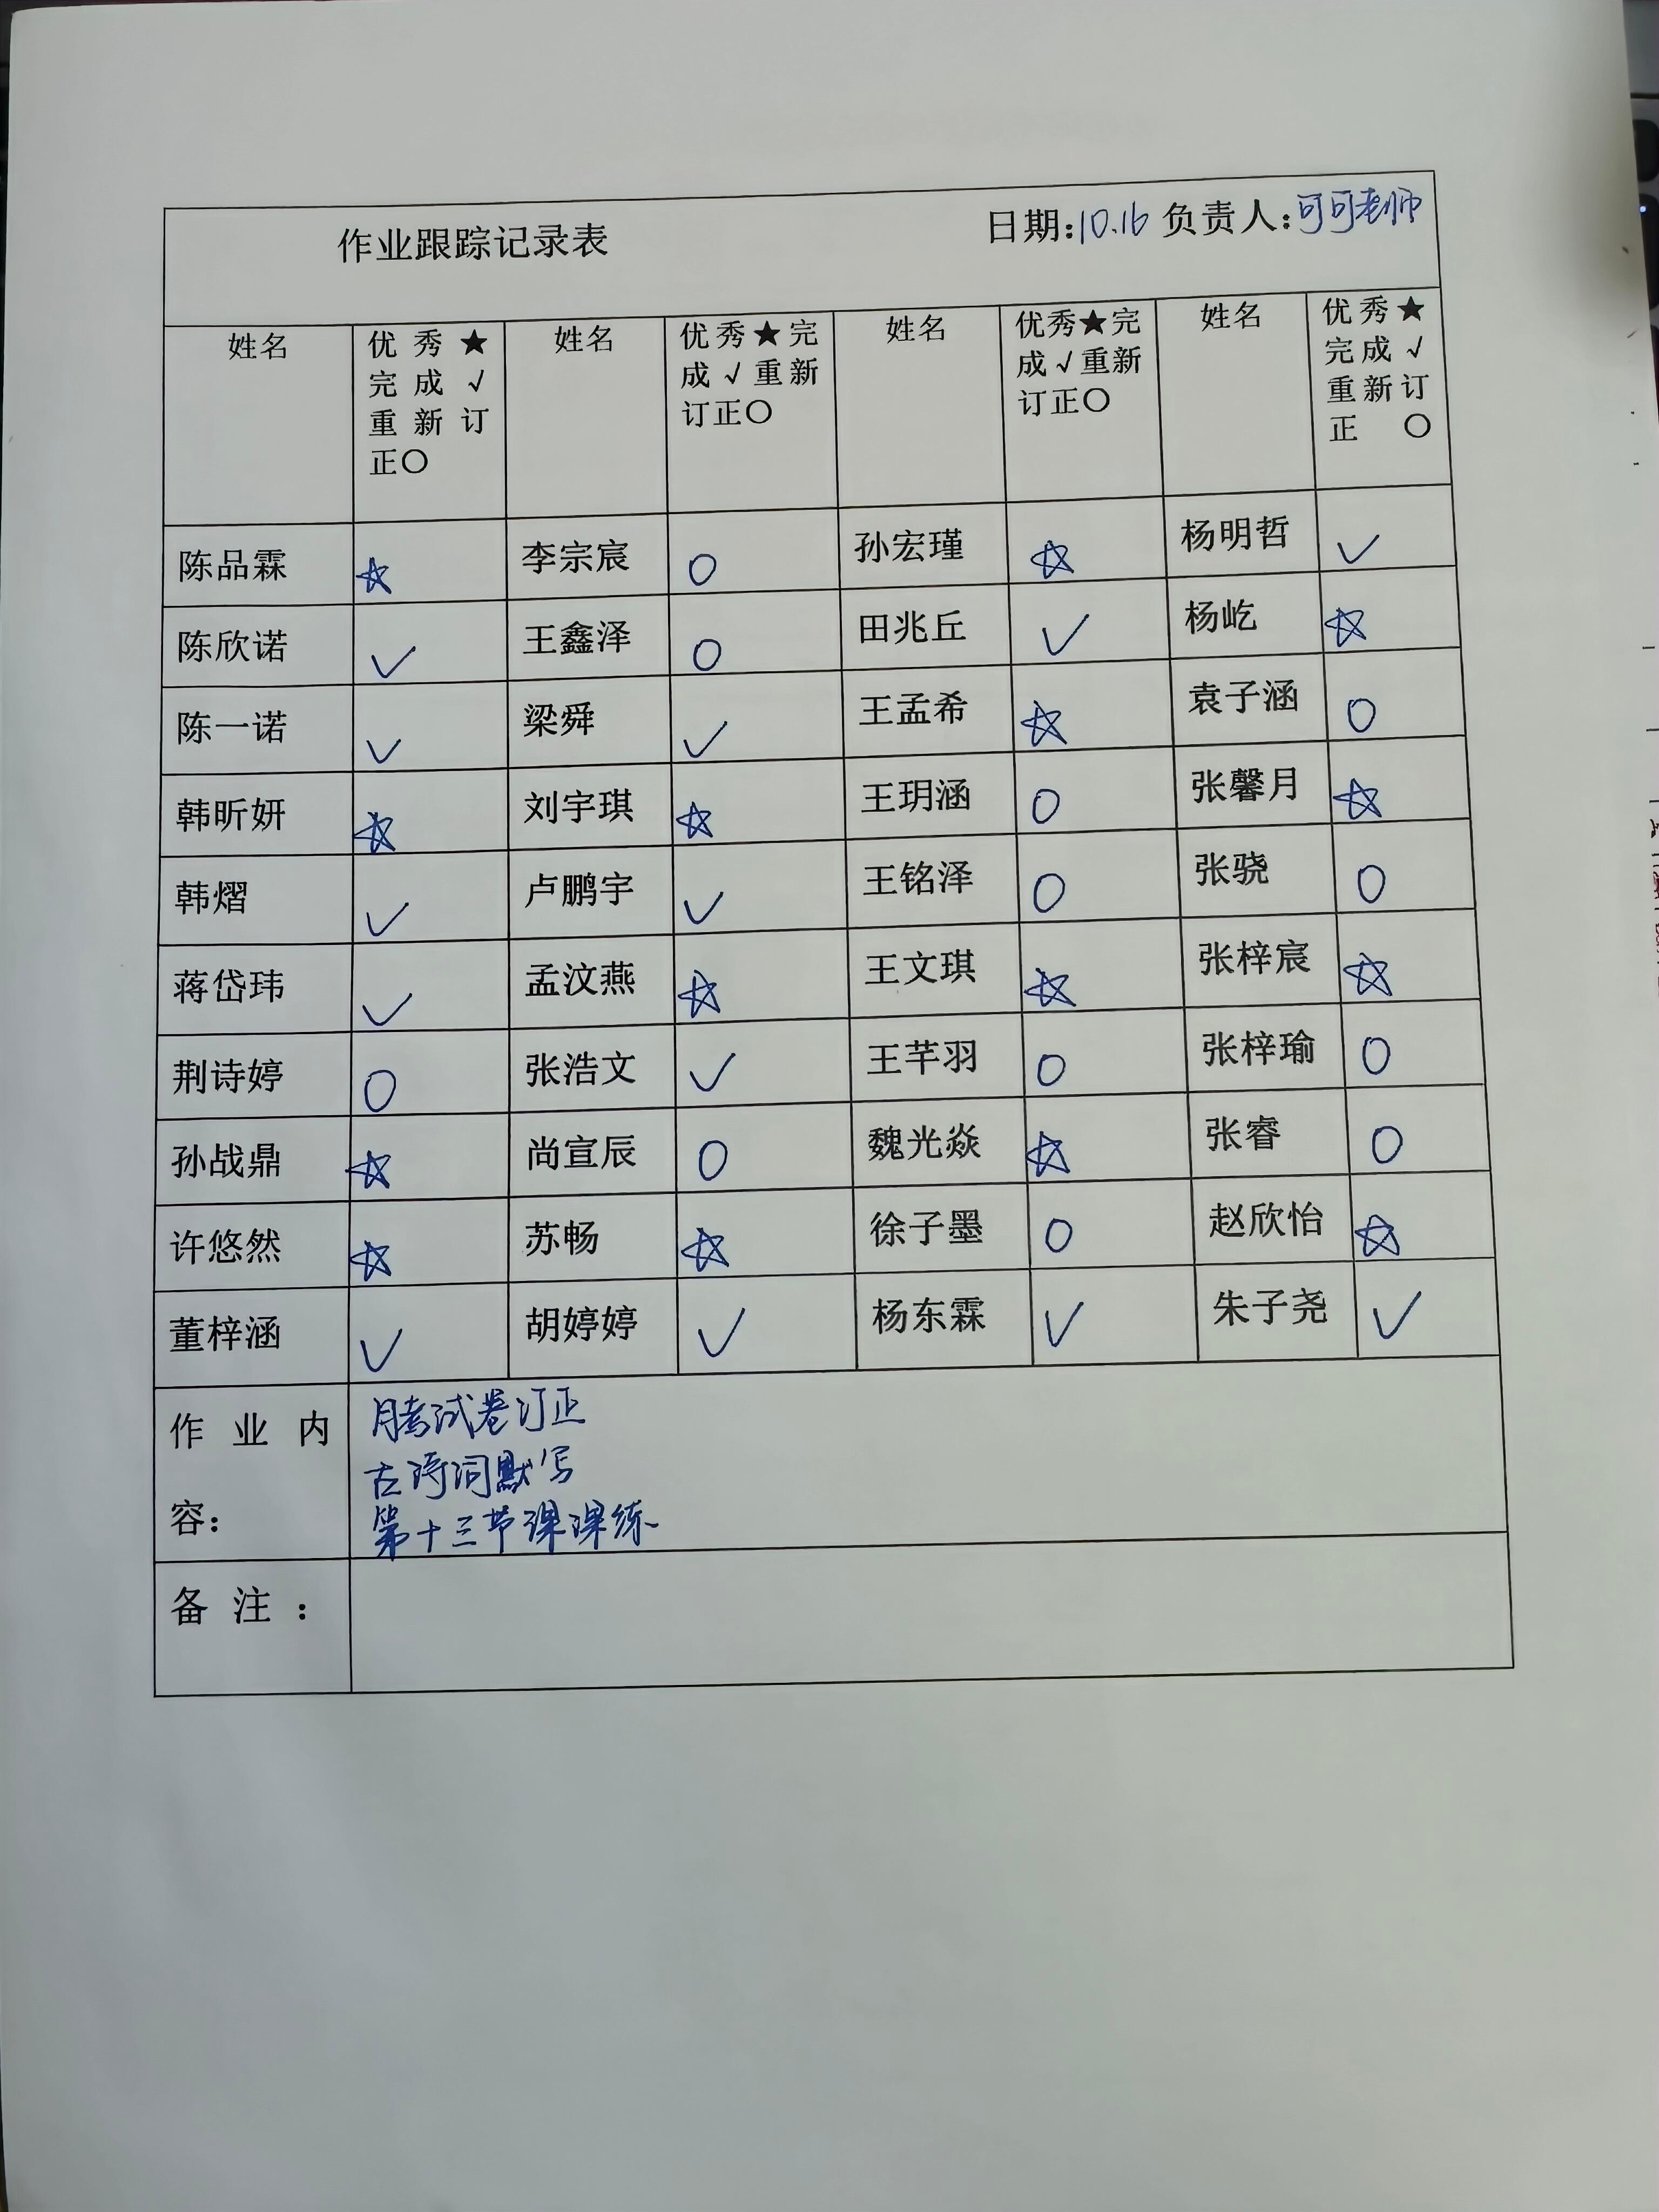 作业跟踪记录表 日期:10.16 负责人:可可老师
姓名 优秀★完成√重新订正〇 姓名 优秀★完成√重新订正〇 姓名 优秀★完成√重新订正〇 姓名 优秀★完成√重新订正〇
陈品霖 ☆ 李宗宸 〇 孙宏瑾 ☆ 杨明哲 √
陈欣诺 √ 王鑫泽 〇 田兆丘 √ 杨屹 ☆
陈一诺 √ 梁舜 √ 王孟希 ☆ 袁子涵 〇
韩昕妍 ☆ 刘宇琪 ☆ 王玥涵 〇 张馨月 ☆
韩熠 √ 卢鹏宇 √ 王铭泽 〇 张骁 〇
蒋岱玮 √ 孟汶燕 ☆ 王文琪 ☆ 张梓宸 ☆
荆诗婷 〇 张浩文 √ 王芊羽 〇 张梓瑜 〇
孙战鼎 ☆ 尚宣辰 〇 魏光焱 ☆ 张睿 〇
许悠然 ☆ 苏畅 ☆ 徐子墨 〇 赵欣怡 ☆
董梓涵 √ 胡婷婷 √ 杨东霖 √ 朱子尧 √
作业内容:
月考试卷订正
古诗词默写
第十三节课课练
备注: